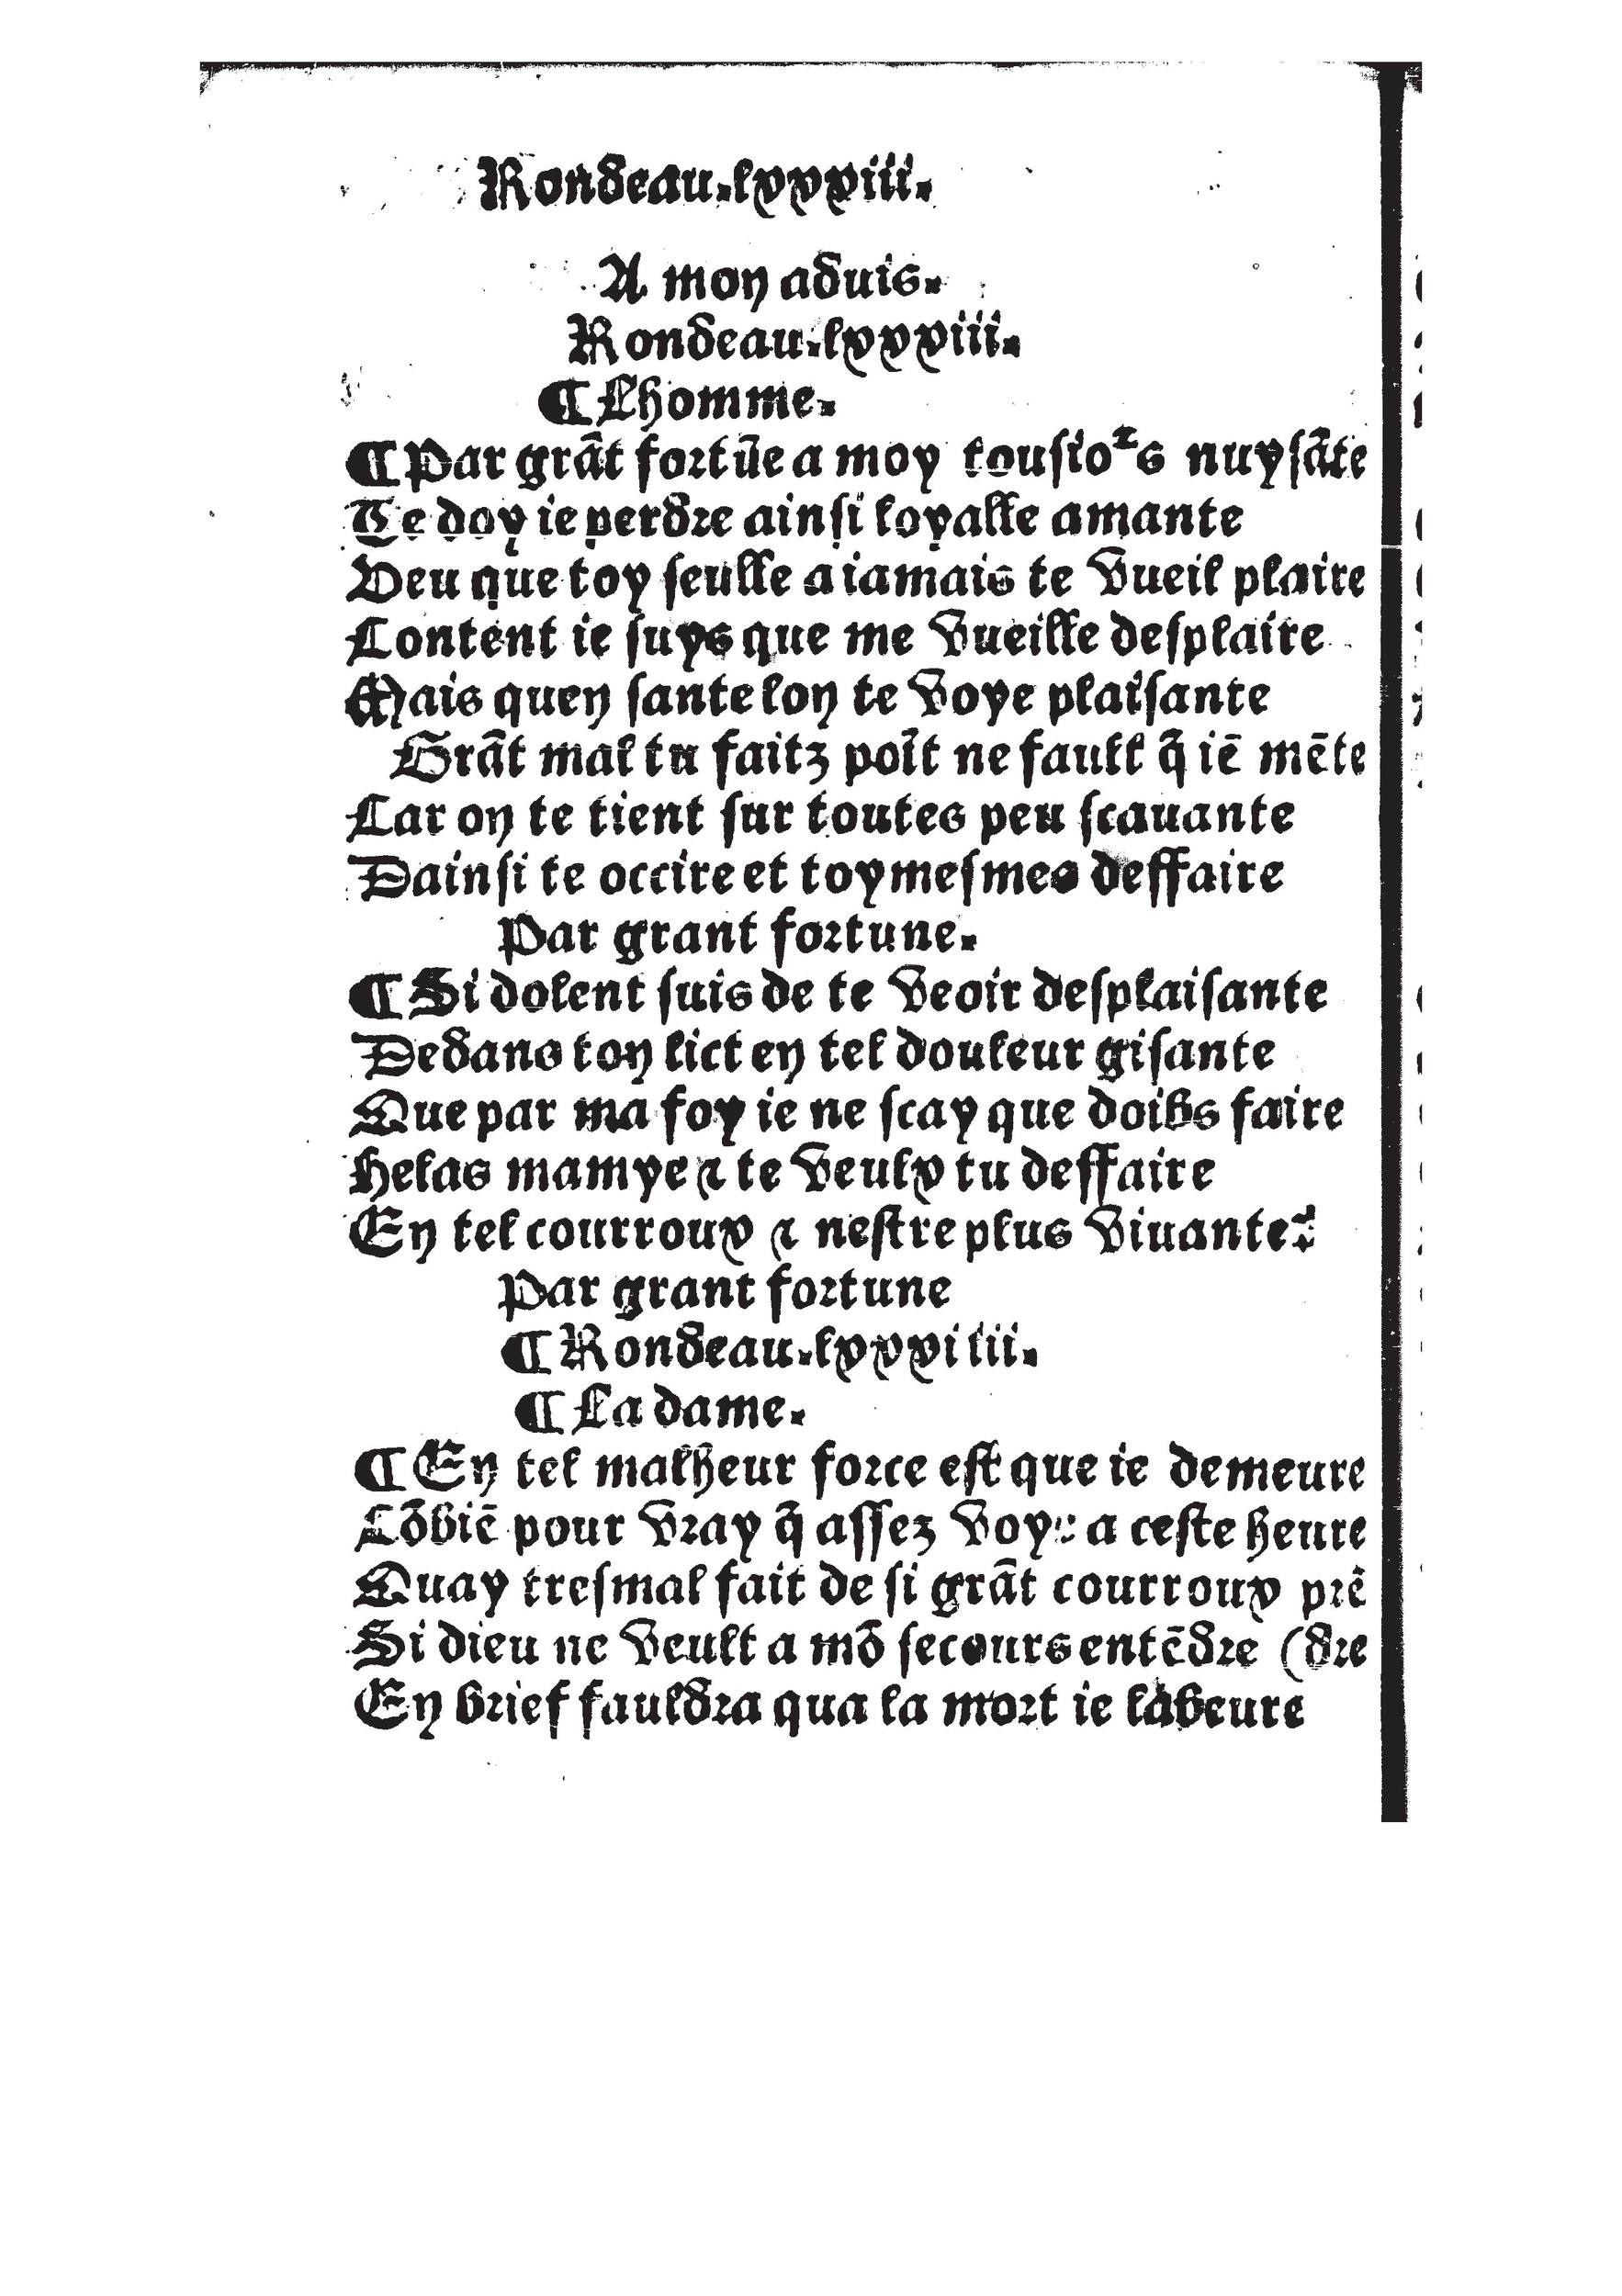 Rondeau.lxxxiii.
A mon aduis.
Rondeau.lxxxiii.
¶ Lhomme.
¶ Par grãt fortũe a moy tousioᷣs nuysãte
Te doy ie perdre ainsi loyalle amante
Veu que toy seulle a iamais te vueil plaire
Content ie suys que me vueille desplaire
Mais quen sante lon te voye plaisante
Grãt mal tu faitz poĩt ne fault q̃ iē mēte
Car on te tient sur toutes peu scauante
Dainsi te occire et toymesmes deffaire
Par grant fortune.
¶ Si dolent suis de te veoir desplaisante
Dedans ton lict en tel douleur gisante
Que par ma foy ie ne scay que doibs faire
Helas mamye ⁊ te veulx tu deffaire
En tel courroux ⁊ nestre plus viuante?
Par grant fortune
¶ Rondeau.lxxxiiii.
¶ La dame.
¶ En tel malheur force est que ie demeure
Cõbiē pour vray q̃ assez voye a ceste heure
Quay tresmal fait de si grãt courroux prē
Si dieu ne veult a mõ secours entēdre (dre
En brief fauldra qua la mort ie labeure